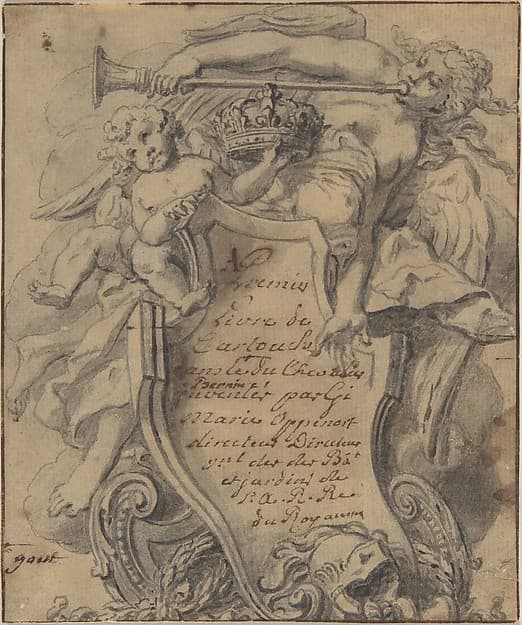 A
Premier
Livre de
Cartouche
dans le du Chevalier
Bernin
inventés par Gi
Marie Oppenort
directeur Directeur
gnl des des Bât
et jardins de
S. A. R. Re
du Royaume
gout